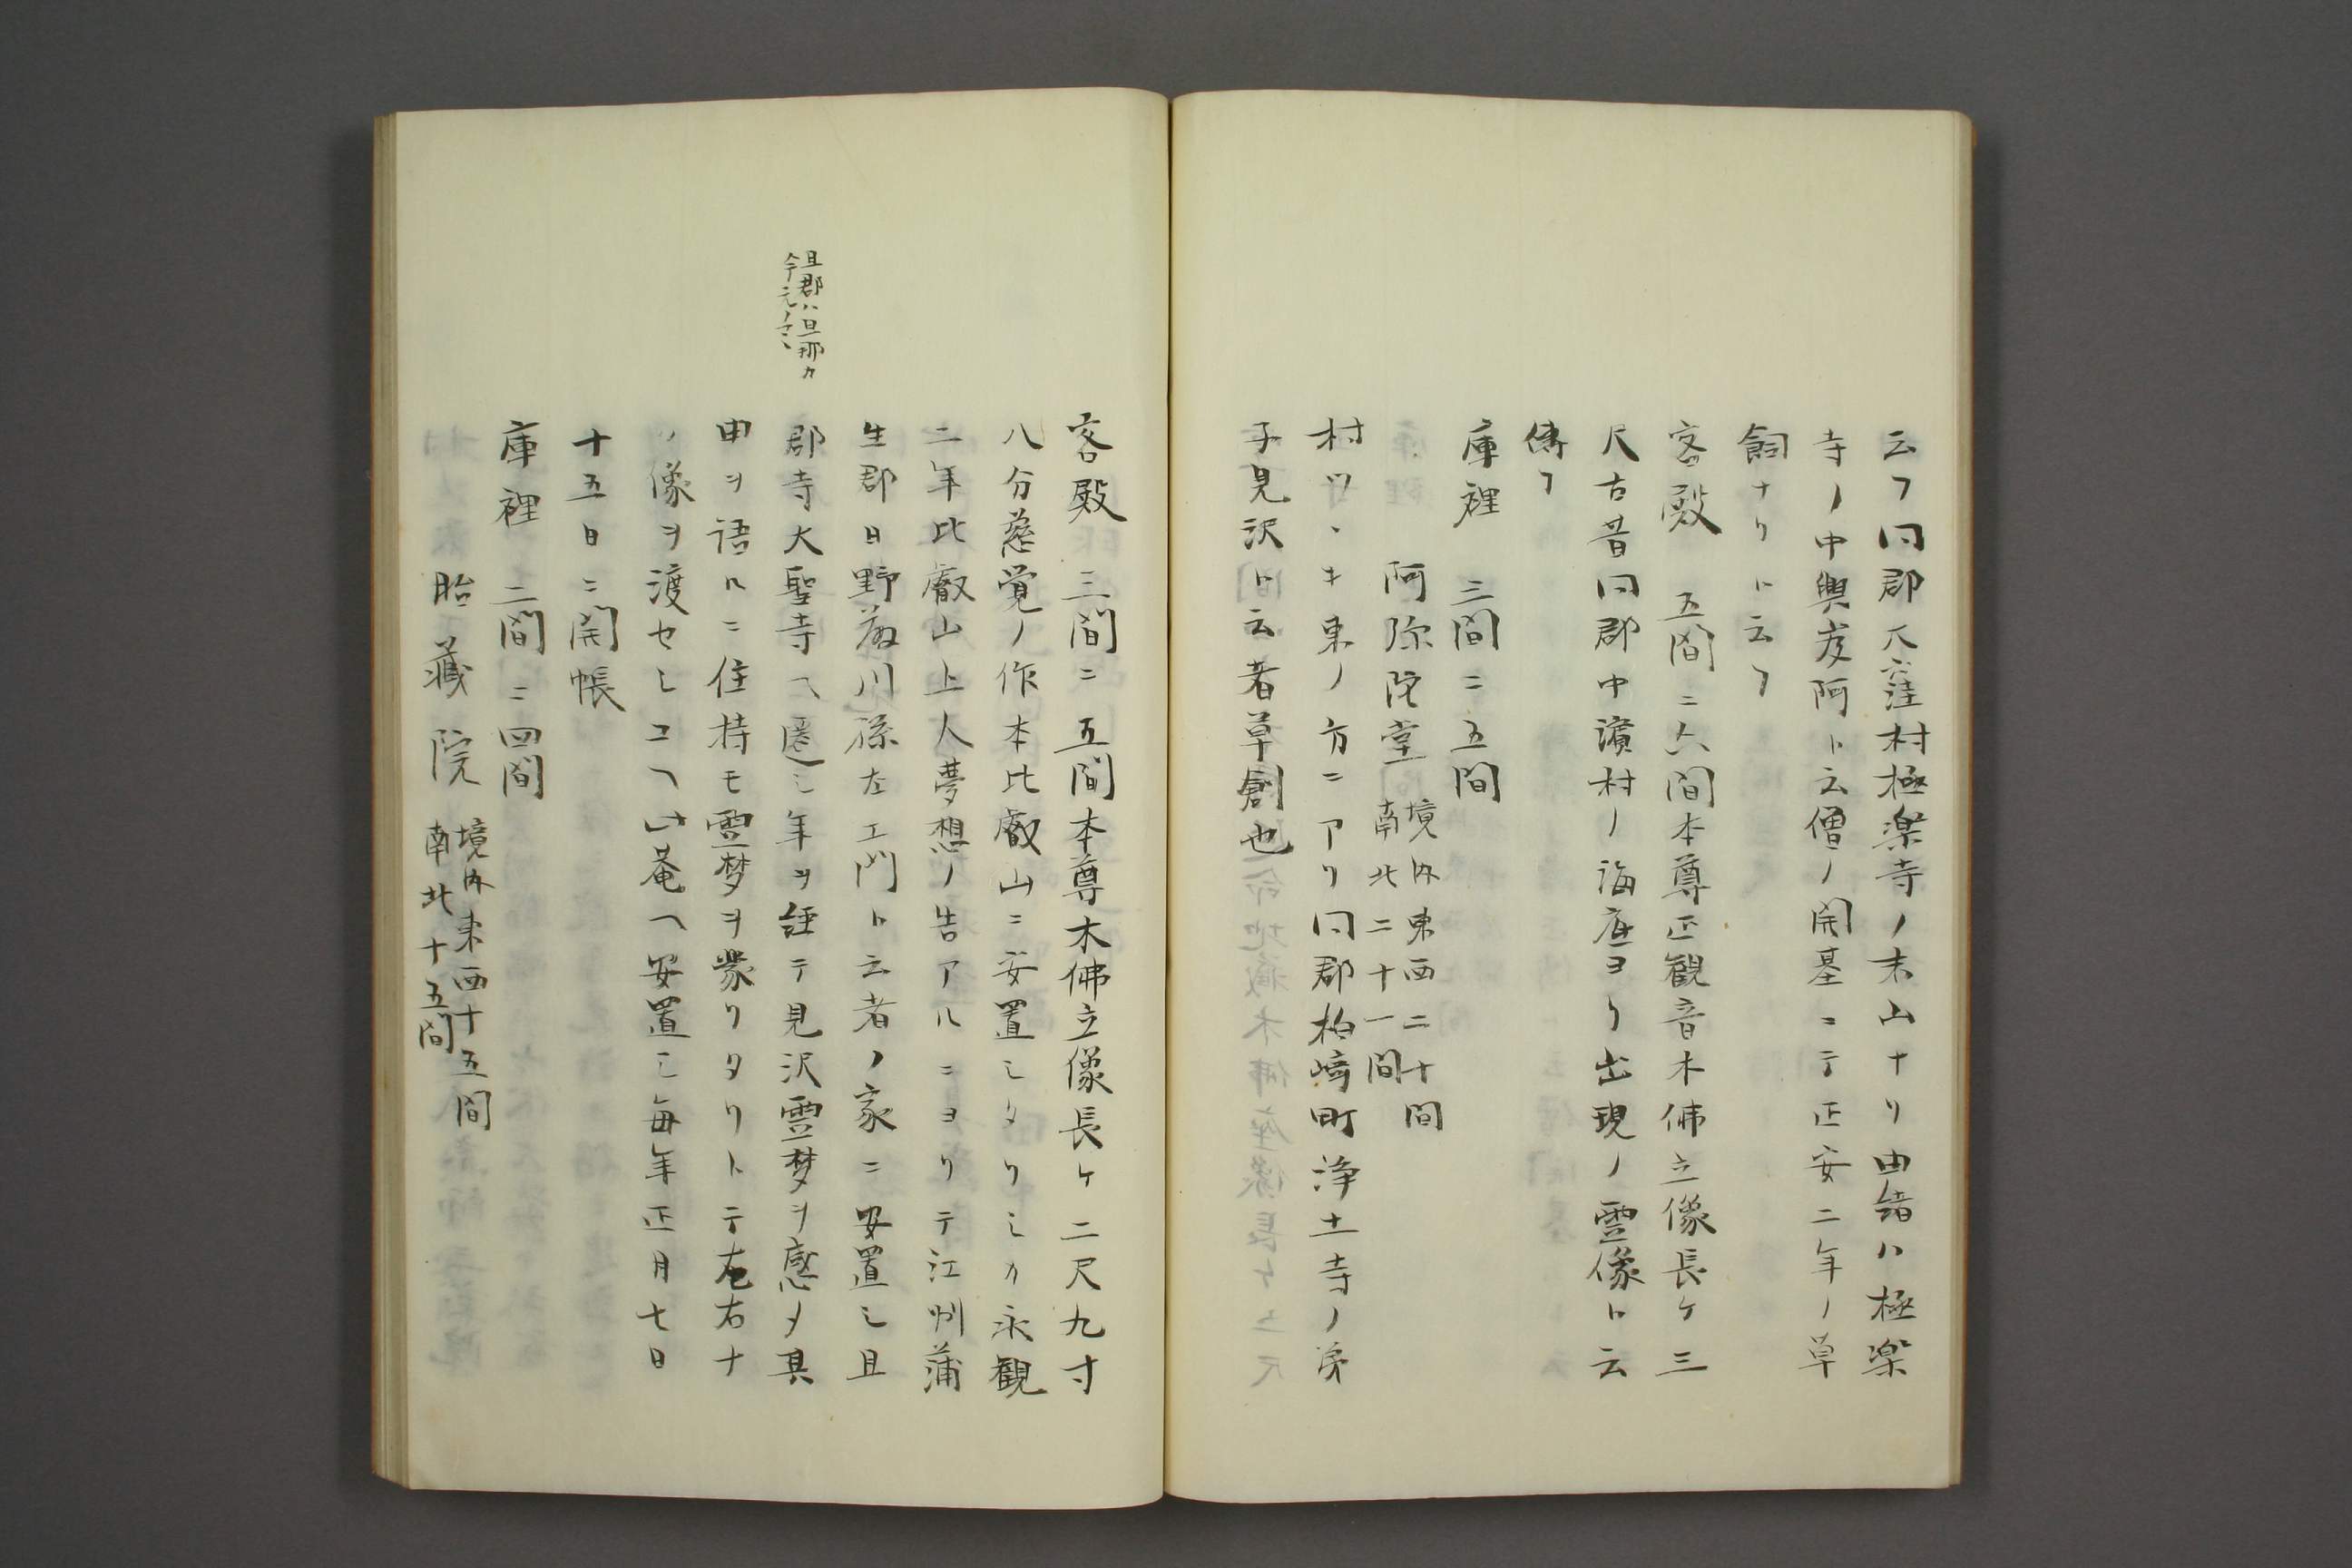 云フ同郡大窪村極楽寺ノ末山ナリ由緒ハ極楽
寺ノ中興度阿ト云僧ノ開基ニテ正安二年ノ草
飼ナリト云フ
客殿　五間ニ六間本尊正観音木佛立像長ケ三
尺古昔同郡中濱村ノ海底ヨリ出現ノ霊像ト云
傳フ
庫裡　三間ニ五間
阿弥陀堂　境内東西二十間
南北二十一間
村ツヽキ東ノ方ニアリ同郡柏﨑町浄土寺ノ旁
子見沢ト云者草創也
客殿　三間ニ五間本尊木佛立像長ケ二尺九寸
八分慈覚ノ作本比叡山ニ安置シタリシカ永観
二年比叡山上人夢想ノ告アルニヨリテ江州蒲
生郡日野蒻川孫左エ門ト云者ノ家ニ安置シ且
旦郡ハ旦那カ
今元ノまヽ
郡寺大聖寺ヘ遷シ年ヲ経テ見沢霊梦ヲ感メ其
由ヲ語ルニ住持モ霊梦ヲ蒙リタリトテ左右ナ
ノ像ヲ渡セシユヘ此菴ヘ安置シ毎年正月七日
十五日ニ開帳
庫裡　二間ニ四間
胎藏院　境内東西十五間
南北十五間